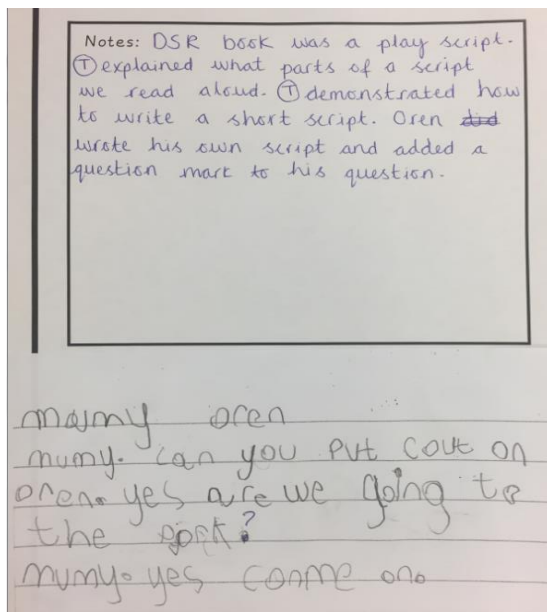 Notes: DSR book was a play script.
Ⓣ explained what parts of a script
we read aloud. Ⓣ demonstrated how
to write a short script. Oren did
wrote his own script and added a
question mark to his question.
mumy oren
mumy. can you put cout on
oren. yes are we going to
the park?
mumy. yes conme on.